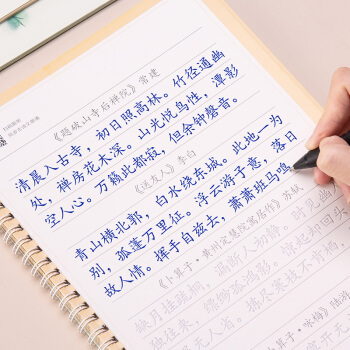 《题破山寺后禅院》常建
清晨入古寺，初日照高林。竹径通幽
处，禅房花木深。山光悦鸟性，潭影
空人心。万籁此都寂，但余钟磬音。
《送友人》李白
青山横北郭，白水绕东城。此地一为
别，孤蓬万里征。浮云游子意，落日
故人情。挥手自兹去，萧萧班马鸣
《卜算子·黄州定慧院寓居作》苏轼
缺月挂疏桐，漏断人初静。时见幽
独往来，缥缈孤鸿影。
无人省。拣尽寒枝不肯
《卜算子·咏梅》陆游